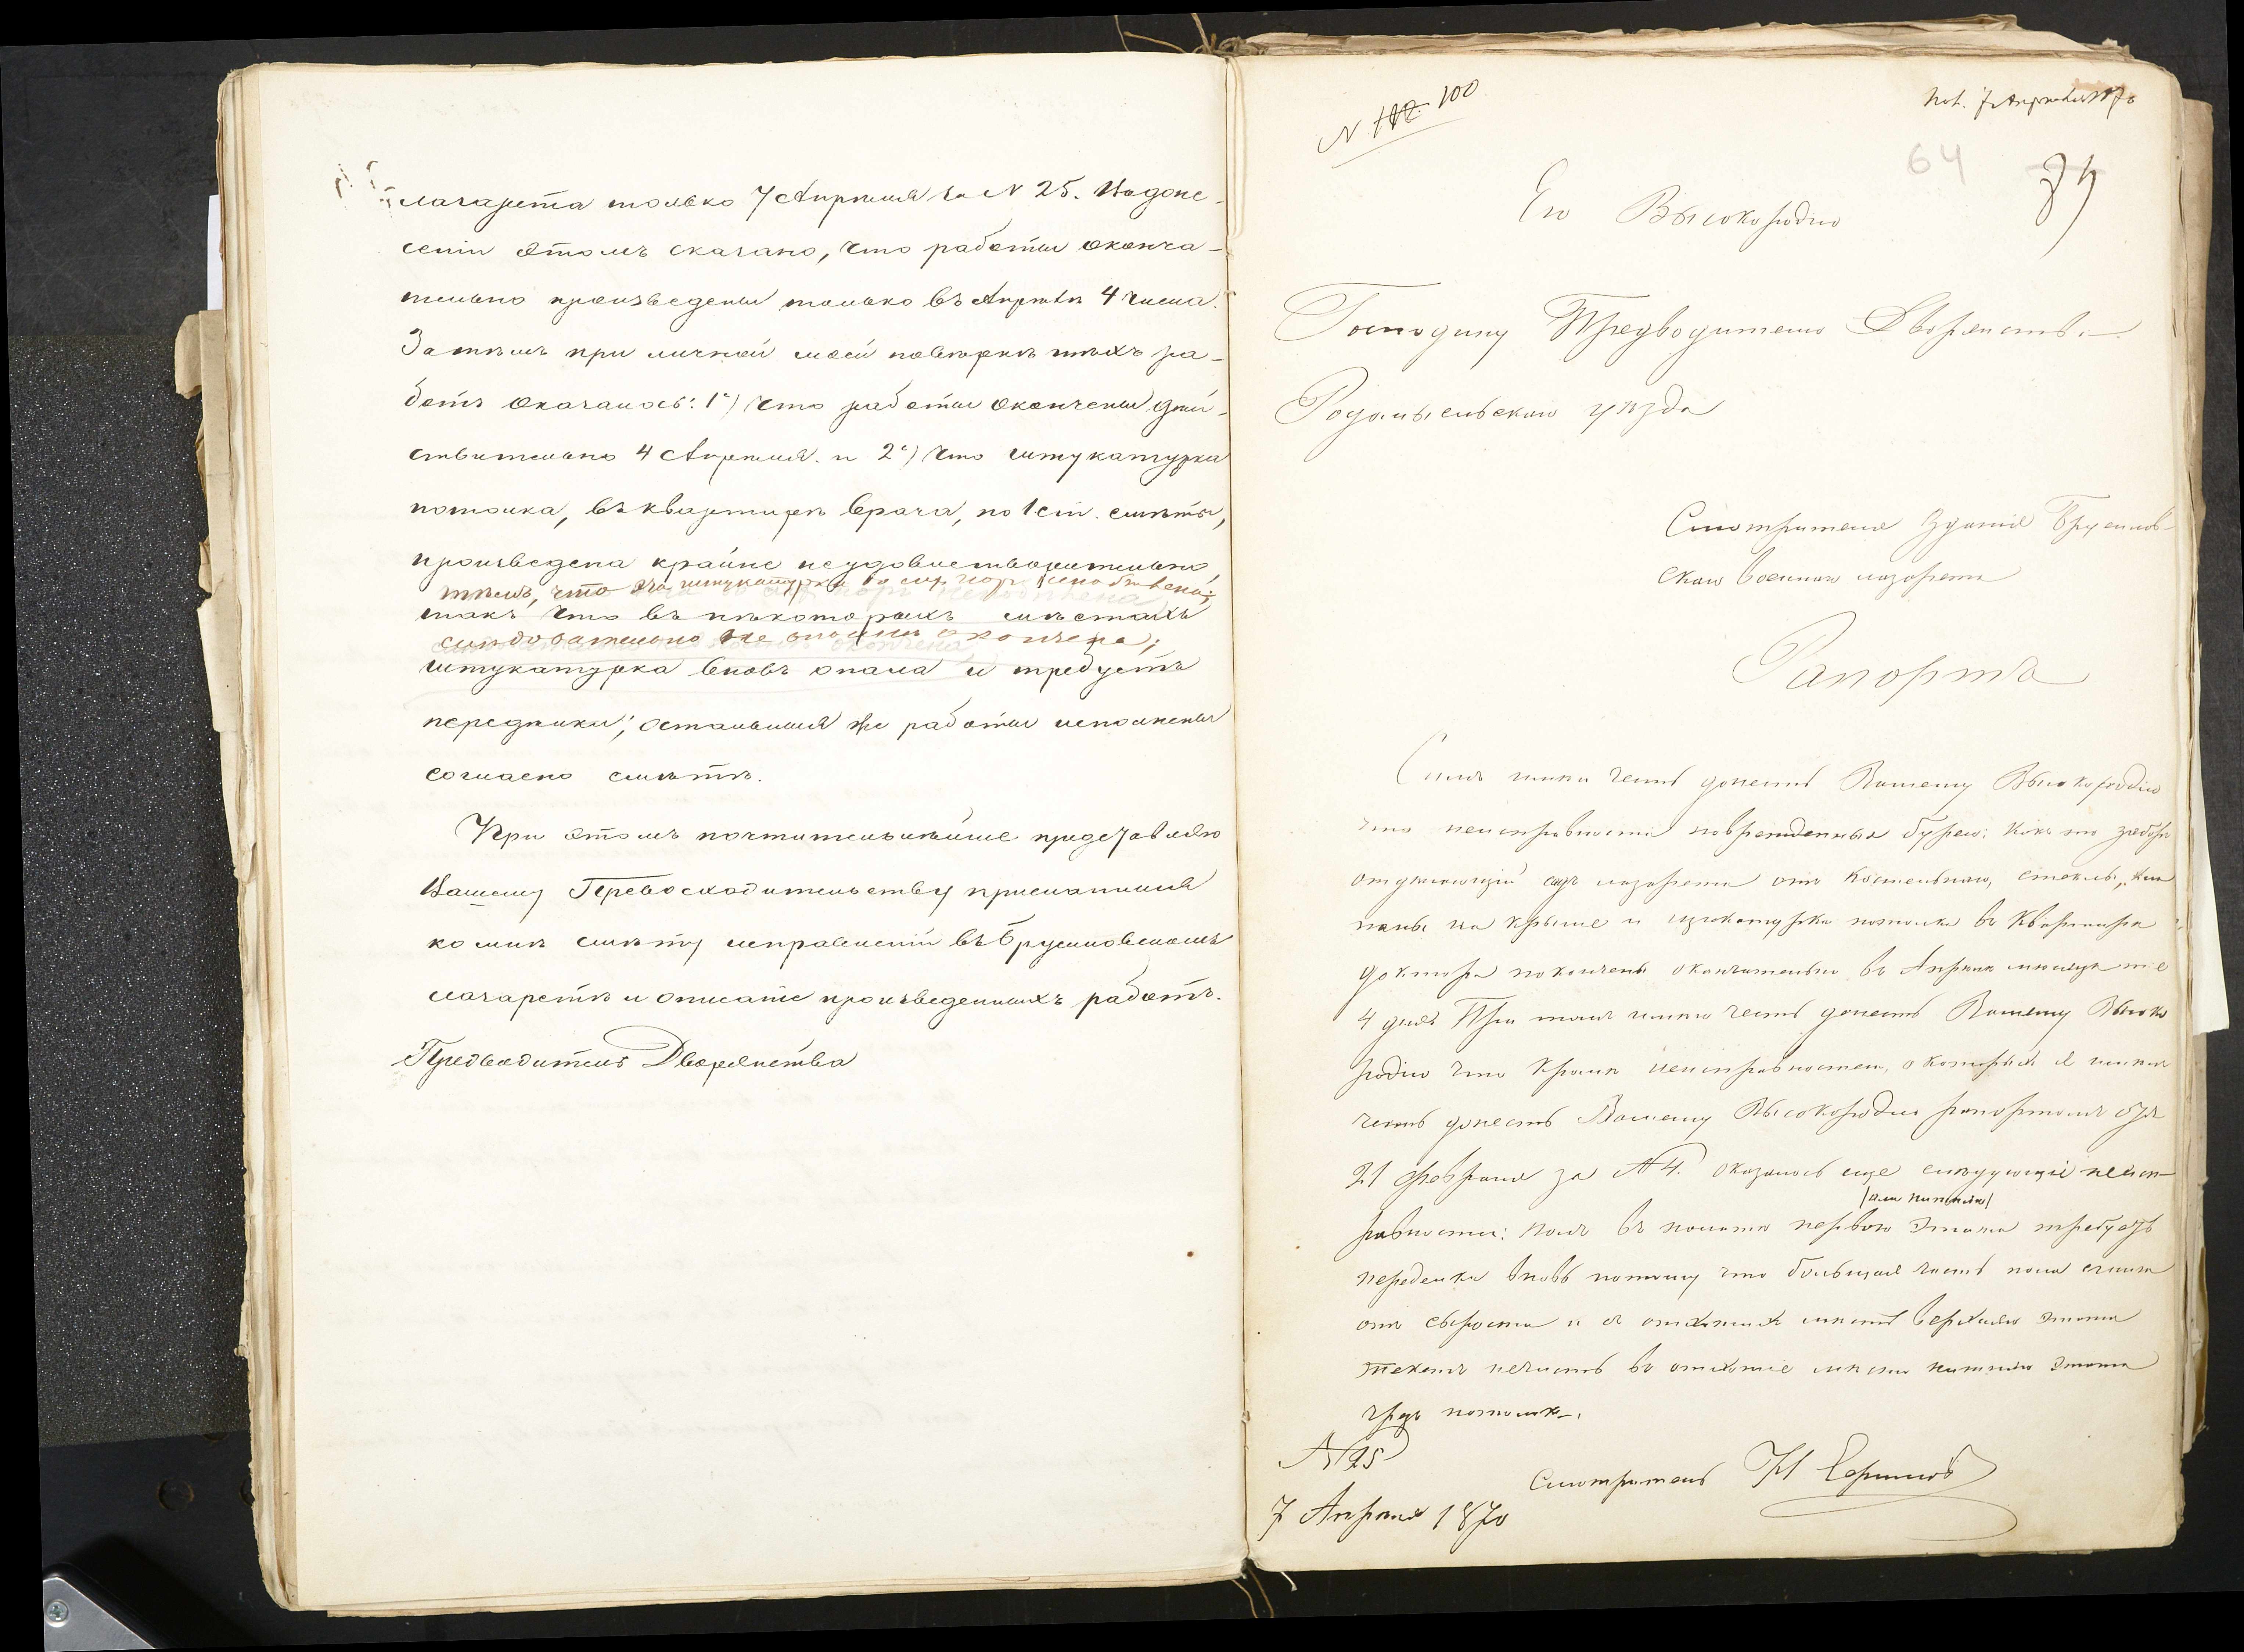 лазарета только 7 Апрѣля за N 25. Въ доне-
сеніи этомъ сказано, что работы оконча-
тельно произведены только въ Апрѣлѣ 4 числа.
Затѣмъ при личной моей повѣркѣ тѣхъ ра-
ботъ оказалось: 1) что работы окончены дѣй-
ствительно 4 Апрѣля. и 2) что штукатурка
потолка, въ квартирѣ врача, по 1 ст. смѣты,
произведена крайне неудовлетворительно,
тѣмъ, что эта штукатурка до сихъ поръ непобѣлена,
такъ что въ нѣкоторыхъ мѣстахъ
слѣдовательно не окончена;
штукатурка вновь опала и требуетъ
передѣлки; остальныя же работы исполнены
согласно смѣтѣ.
При этомъ почтительнѣйше представляю
Вашему Превосходительству присланныя
ко мнѣ смѣту исправленій въ Брусиловскомъ
лазаретѣ и описаніе произведенныхъ работъ.
Предводитель Дворянства
N 112 100
Пол. 7 Апрѣля 1870
64
Его Высокородію
Господину Предводителю Дворянства
Радомысльскаго уѣзда
Смотрителя зданія Брусилов-
скаго военнаго лазарета
Рапортъ
Симъ имѣю честь донесть Вашему Высокородію
что неисправности поврежденныя бурею: какъ то заборъ
отдѣляющій садъ лазарета отъ Костельнаго, стеклы,
на крыше и щукатурка потолка въ Квартирѣ
доктора покончены окончательно въ Апрѣлѣ мѣсяцѣ
4 дня При томъ имѣю честь донесть Вашему Высоко
родію что кромѣ неисправностей, о которыхъ я имѣлъ
честь донесть Вашему Высокородію рапортомъ отъ
21 Февраля за N 4. оказалось еще слѣдующіе неисп-
равности: полъ въ
палата первого этажа требуетъ
передѣлки вновь потому что большая часть пола сгнила
отъ сырости и съ отхожихъ мѣстъ верхняго этажа
течетъ нечисть въ отхожіе мѣста нижняго этажа
чрезъ потолокъ.
N 25
Смотритель
7 Апрѣля 1870